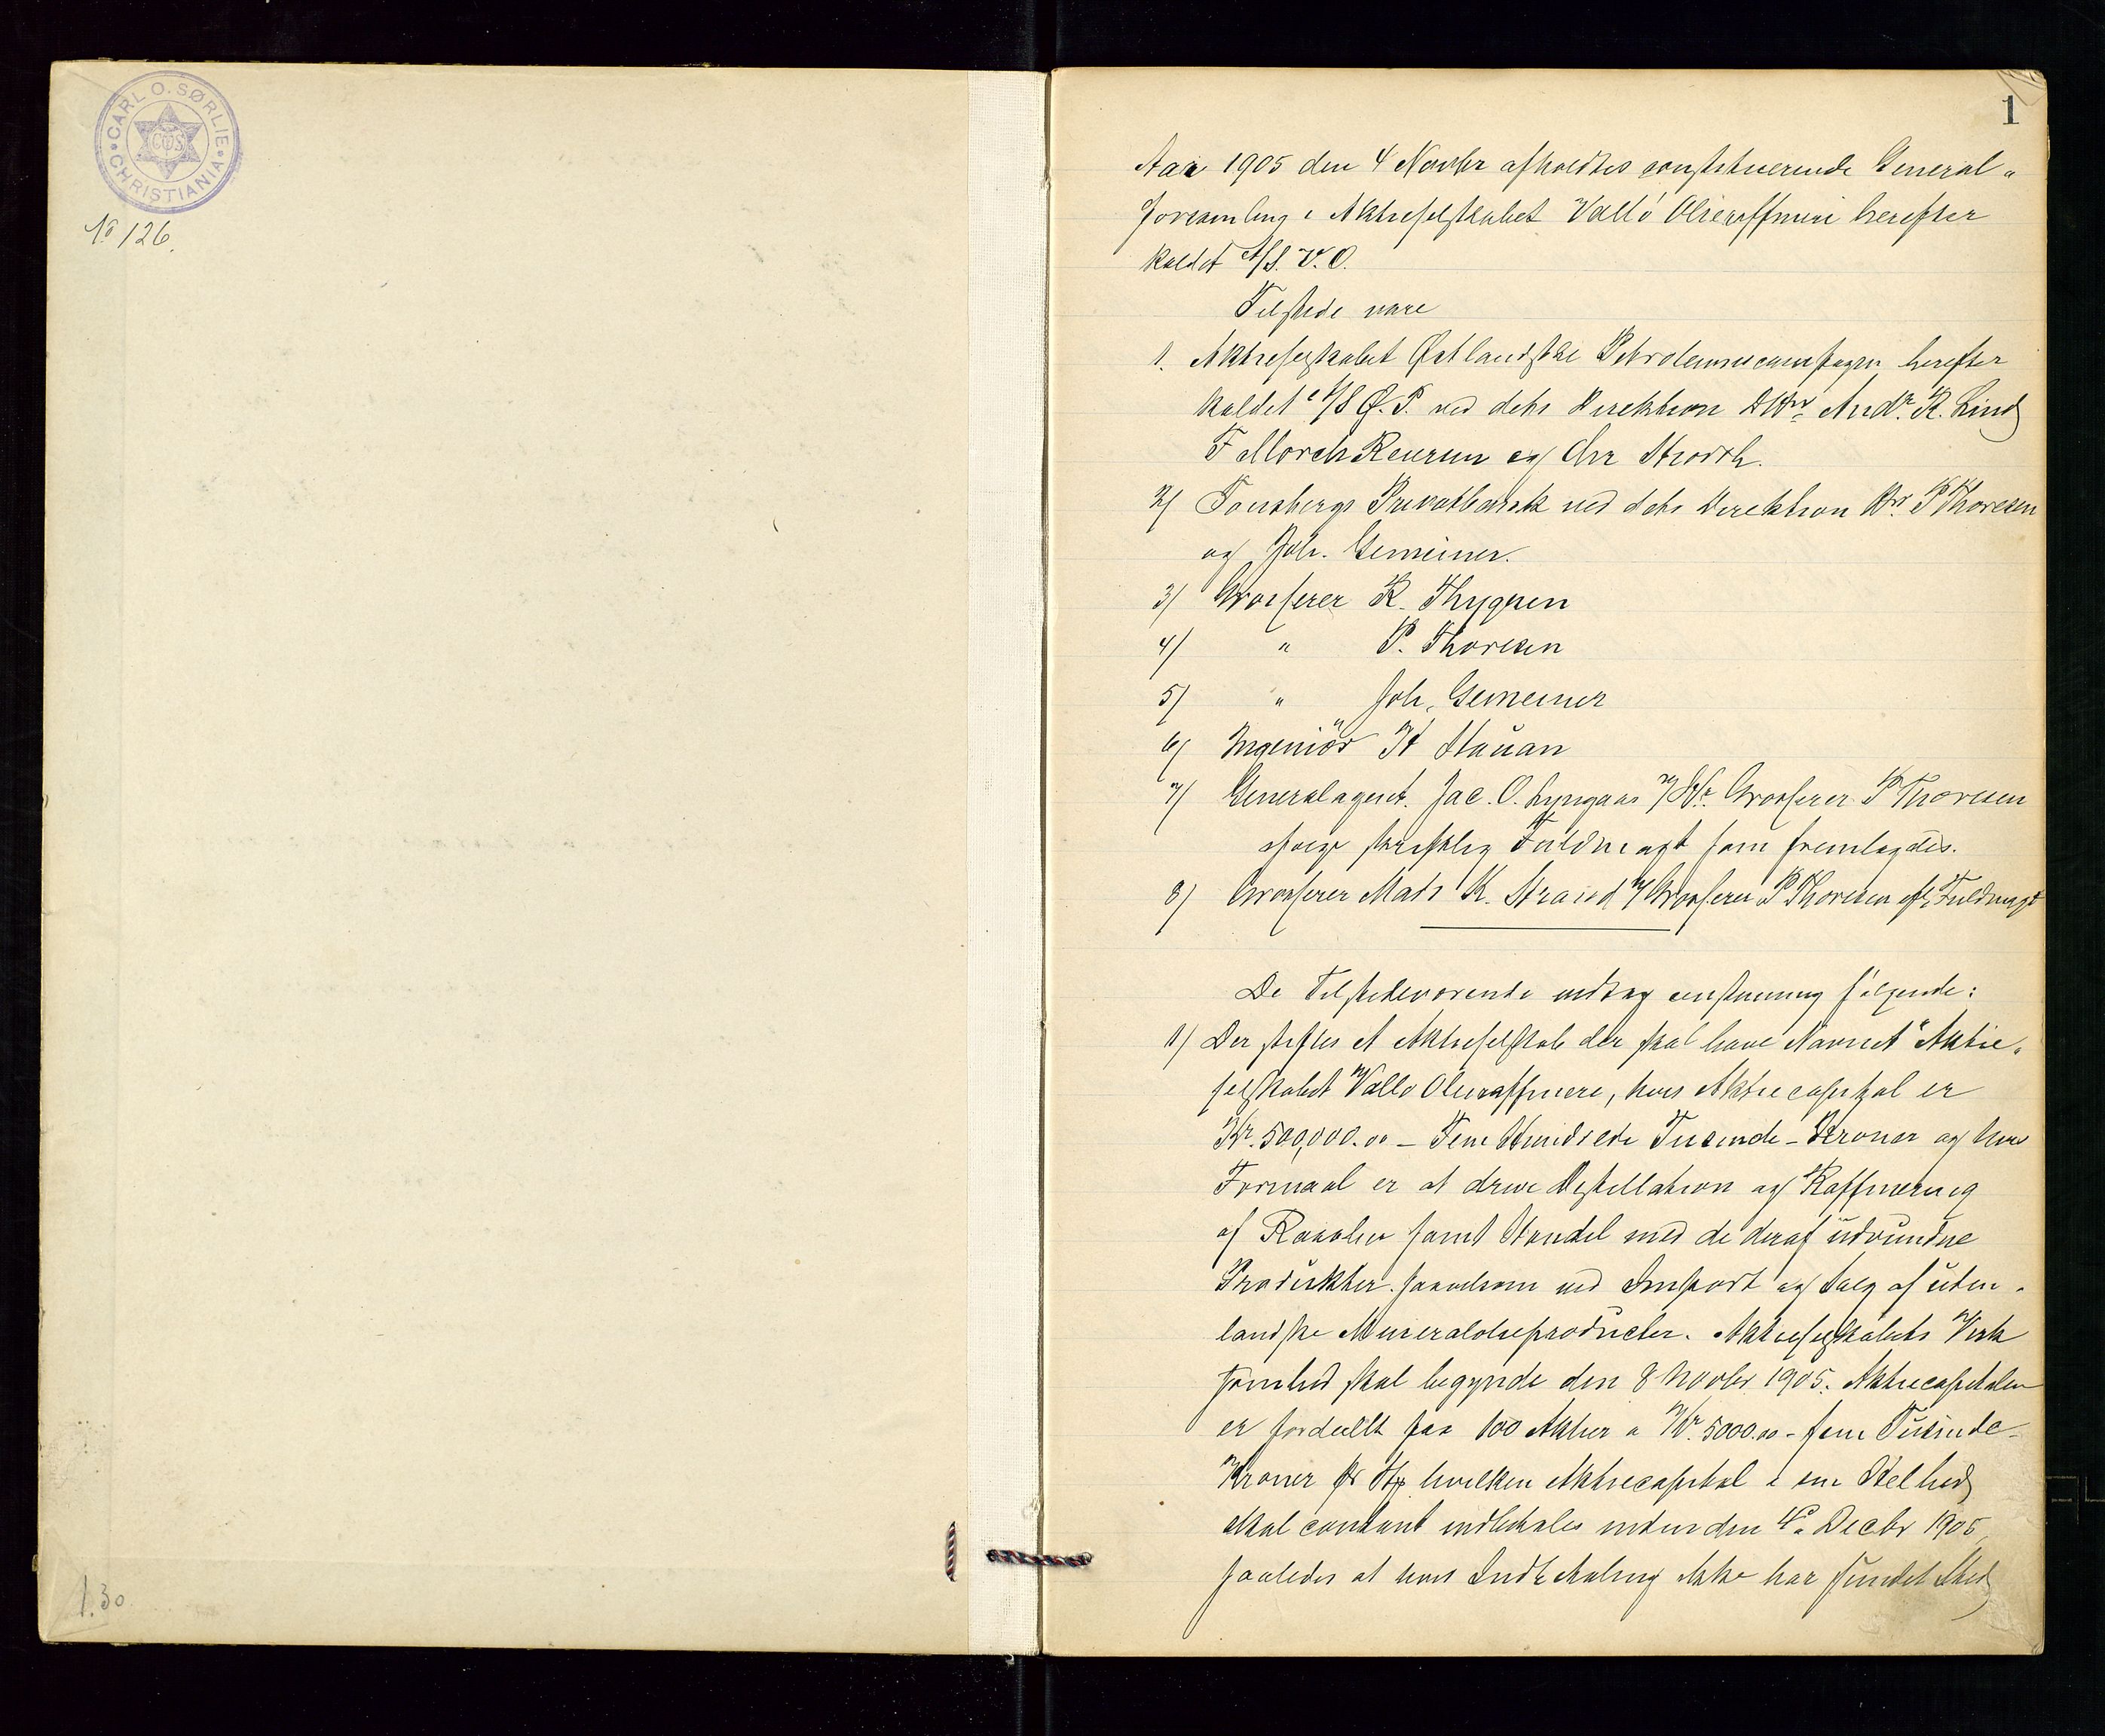 CARL O. SØRLIE
CHRISTIANIA
COS
No 126.
1.30
1
Aar 1905 den 4 Novbr afholdtes constituerende General„
forsamling i Aktieselskabet Vallö Olieraffineri herefter
kaldet A/S. V.O.
Tilstede vare
1. Aktieselskabet Østlandske Petroleumscompagni herefter
kaldet A/S Ø. P. ved dets Direktion DHrr Andr. K. Lind
F Morch Reiersen og Chr Storth.
2/ Tonsbergs Privatbank ved dets Direktion Hr. P Thoresen
og Joh. Gemeiner.
3/ Grosserer K. Thygesen
4/ " P. Thoresen
5/ " Joh. Gemeiner
6/ Ingeniör H Hauan
7/ Generalagent. Jac. O. Lyngaas v/ Hr. Grosserer P Thoresen
ifolge skriftlig Fuldmagt som fremlagdes.
8/ Grosserer Mats K. Straed v/ Grosserer P Thoresen eft. Fuldmagt
De Tilstedeværende vedtog eenstemmig følgende:
1/ Der stiftes et Aktieselskab der skal have Navnet "Aktie„
selskabet Vallo Olieraffineri, hvis Aktiecapital er
Kr. 500,000.00 – Fem Hundrede Tusinde – Kroner og hvis
Formaal er at drive Destillation og Raffinering
af Raaolier samt Handel med de deraf udvundne
Produkter saavelsom ved Import og Salg af uden„
landske Mineralolieproducter. Aktieselskabets Virk
somhed skal begynde den 8 Novbr 1905. Aktiecapitalen
er fordeelt paa 100 Aktier a Kr. 5000.00 – fem Tusinde –
Kroner pr Stk hvilken Aktiecapital i sin Helhed
skal contant indbetales inden den 4 Decbr 1905,
saaledes at hvis Indbetaling ikke har fundet Sted